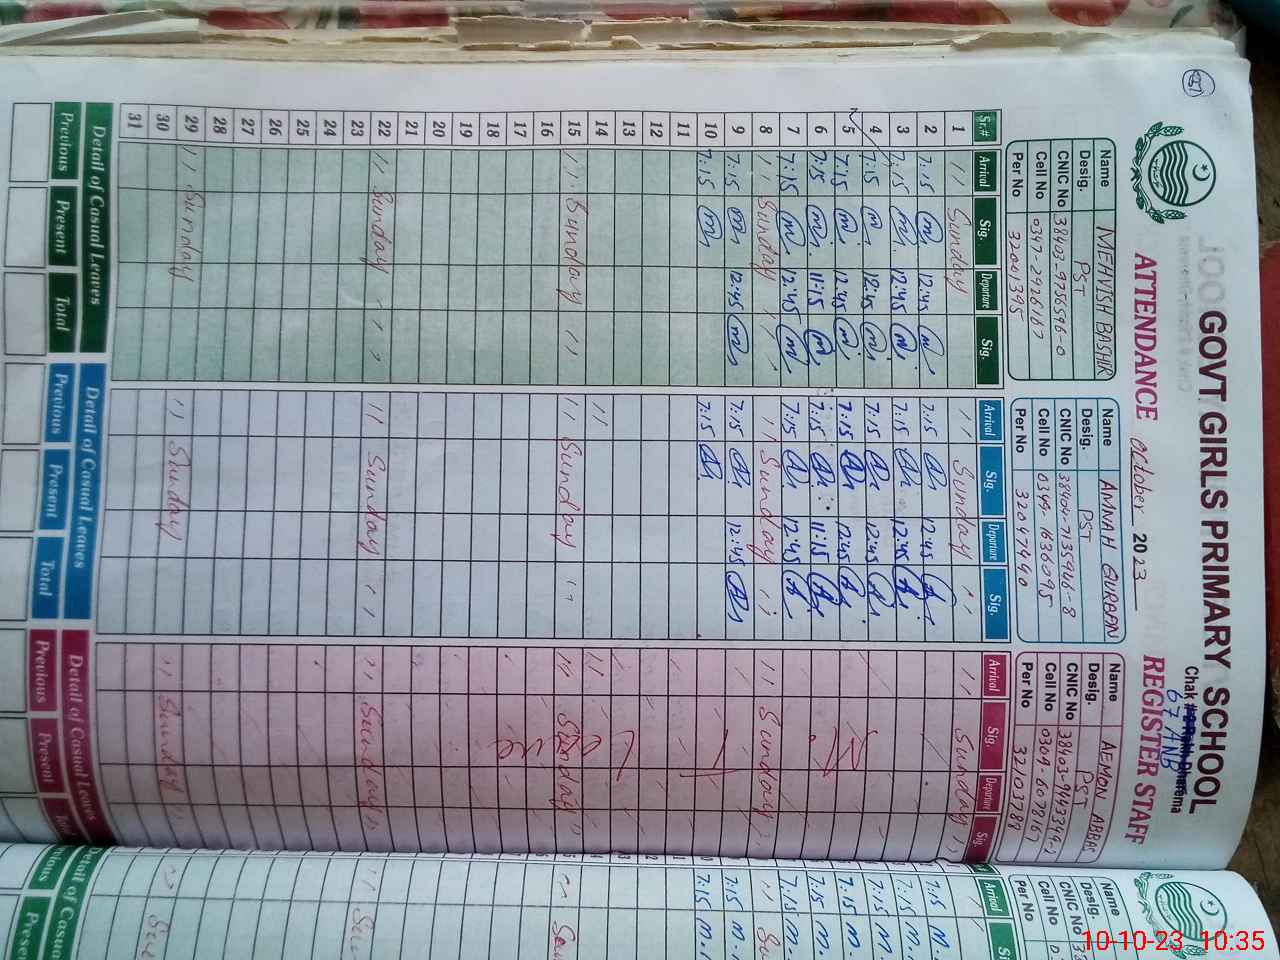 GOVT GIRLS PRIMARY SCHOOL
Chak
67 ANB
ATTENDANCE October 2023 REGISTER STAFF
Name MEHVISH BASHIR
Desig. PST
CNIC No 38403-9756596-0
Cell No 0347-2926167
Per No 32001395
Name AMNAH QURBAN
Desig. PST
CNIC No 38404-7135946-8
Cell No 0349-1636095
Per No 32047490
Name AEMON ABBAS
Desig. PST
CNIC No
Cell No 0309-6078167
Per No 32103788
Sr.# Arrival Sig. Departure Sig. Arrival Sig. Departure Sig. Arrival Sig. Departure Sig.
1 " Sunday " Sunday " " Sunday "
2 7:15 12:45 7:15 12:45
3 7:15 12:45 7:15 12:45
4 7:15 12:45 7:15 12:45
5 7:15 12:45 7:15 12:45
6 7:15 11:15 7:15 11:15
7 7:15 12:45 7:15 12:45
8 " Sunday " " Sunday " " Sunday "
9 7:15 12:45 7:15 12:45
10 7:15 7:15
11
12
13
14 " "
15 " Sunday " " Sunday " " Sunday "
16
17
18
19
20
21
22 " Sunday " " Sunday " " Sunday "
23
24
25
26
27
28
29 " Sunday " Sunday " Sunday "
30
31
Detail of Casual Leaves Detail of Casual Leaves Detail of Casual Leaves
Previous Present Total Previous Present Total Previous Present Total
Name
Desig.
CNIC No
Cell No
Per No
Arrival
7:15
7:15
7:15
7:15
7:15
7:15
7:15
7:15
Detail of Casual
Previous Present
10-10-23 10:35